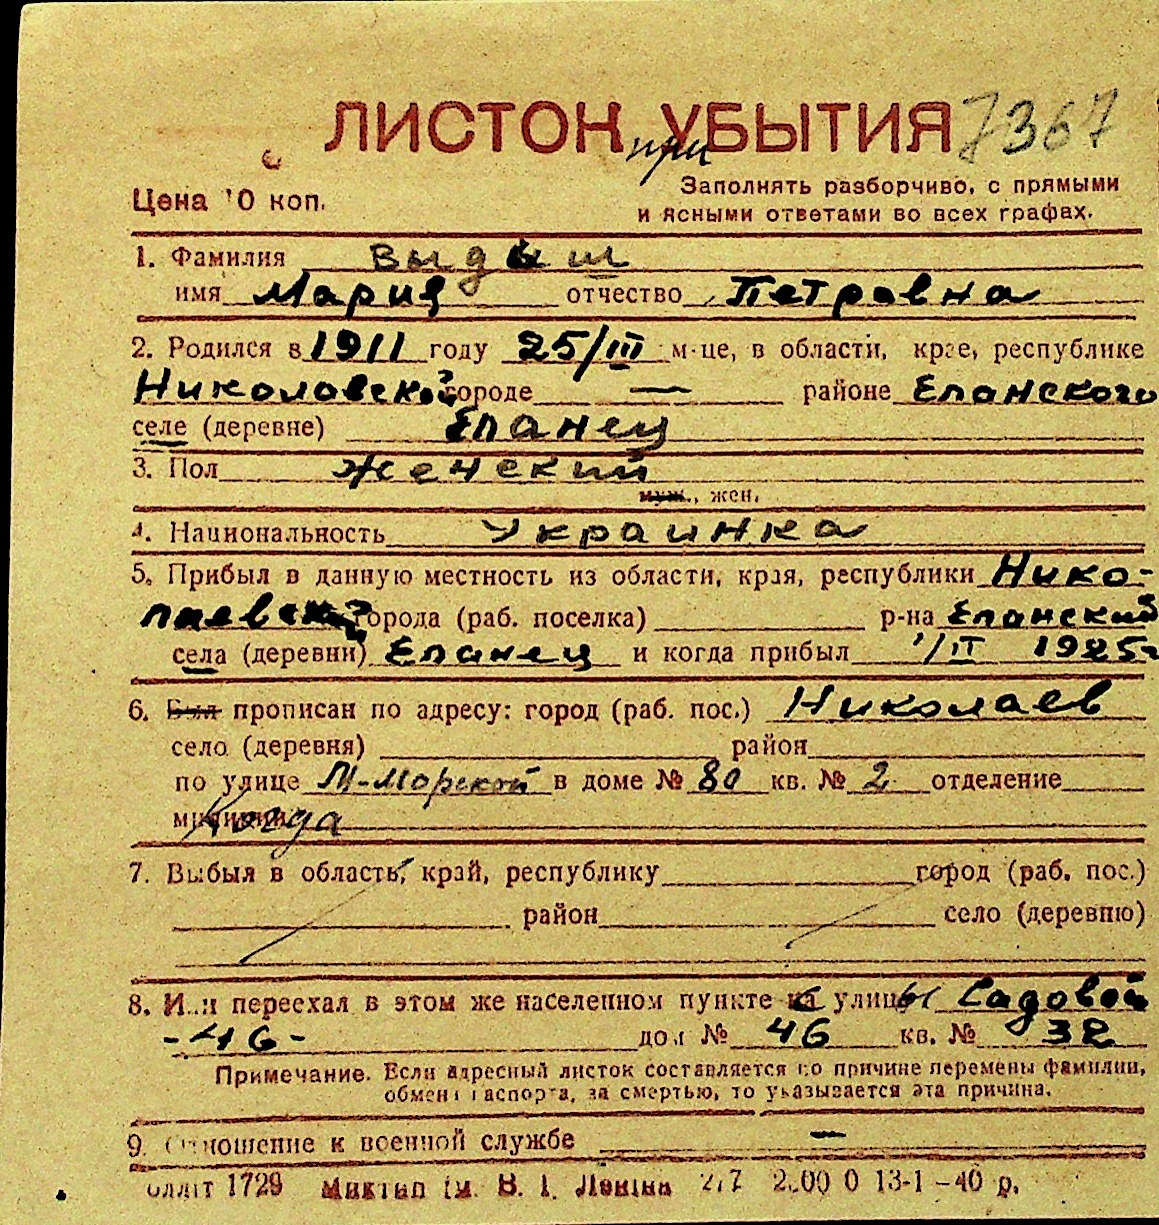 ЛИСТОК УБЫТИЯ 7367
при
Цена 10 коп.
Заполнять разборчиво, с прямыми
и ясными ответами во всех графах.
1. Фамилия Выдыш
имя Мария отчество Петровна
2. Родился в 1911 году 25/III м-це, в области, крае, республике
Николовской городе — районе Еланского
селе (деревне) Еланец
3. Пол женский
муж., жен.
4. Национальность Украинка
5. Прибыл в данную местность из области, края, республики Нико-
лаевской города (раб. поселка) р-на Еланский
села (деревни) Еланец и когда прибыл 1/II 1925г
6. Был прописан по адресу: город (раб. пос.) Николаев
село (деревня) район
по улице М-Морской в доме № 80 кв. № 2 отделение
милиции Когда
7. Выбыл в область, край, республику город (раб. пос.)
район село (деревню)
8. Или переехал в этом же населенном пункте с улицы Садовой
-46- дом № 46 кв. № 32
Примечание. Если адресный листок составляется по причине перемены фамилии,
обмена паспорта, за смертью, то указывается эта причина.
9. Отношение к военной службе —
1729 ім. В. І. Леніна 2.00 0 13-1-40 р.